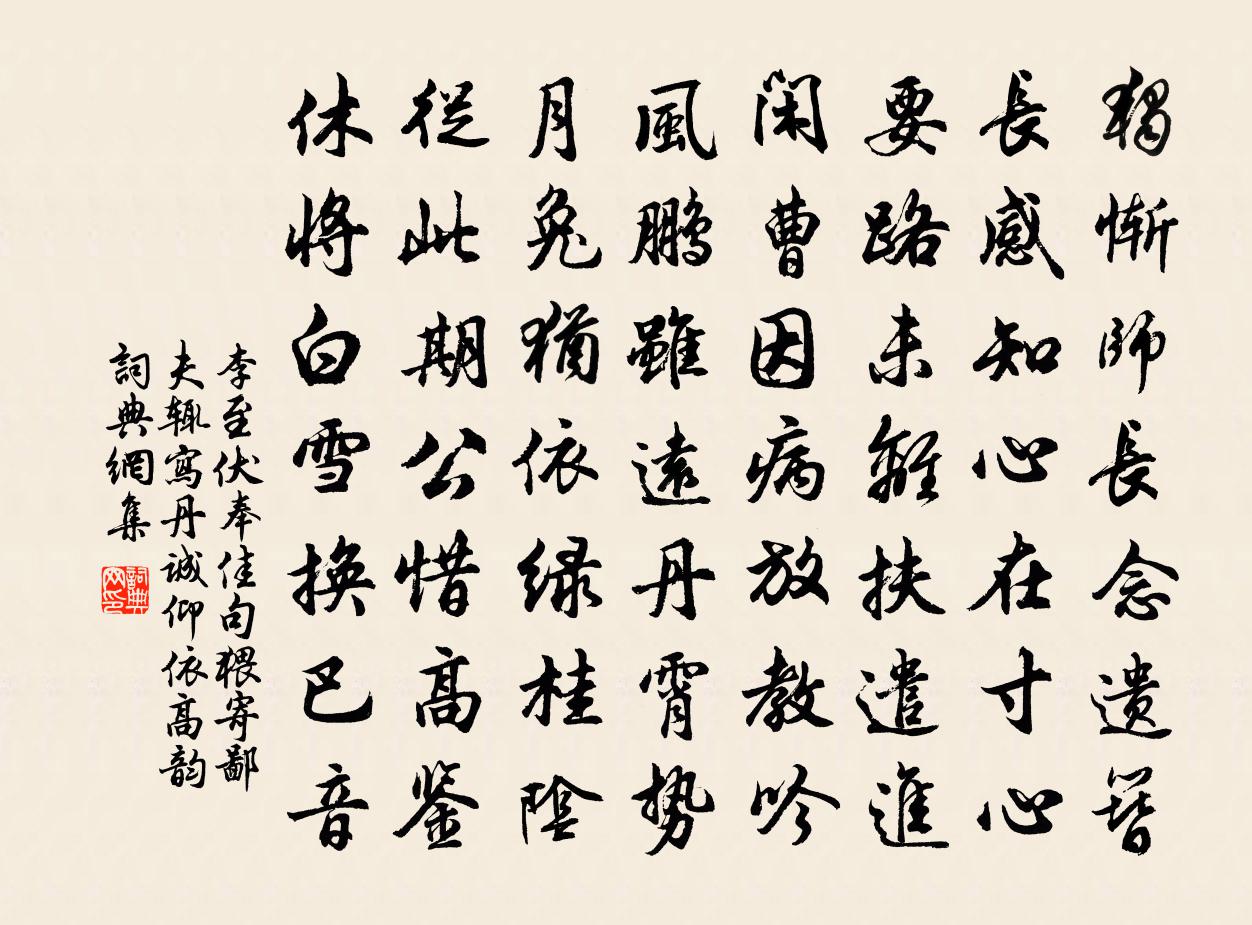 獨慚師長念遺簪
長感知心在寸心
要路未難扶遣進
閑曹因病放教吟
風鵬雖遠丹霄勢
月兔猶依綠桂陰
從此期公惜高鑒
休將白雪換巴音
李至伏奉佳句猥寄鄙
夫輒寫丹誠仰依高韵
詞典網集
詞典網印